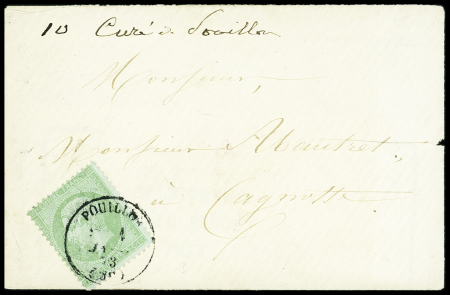 10 Curé de Pouillon
Monsieur,
Monsieur Mautret
à Cagnotte
POUILLON